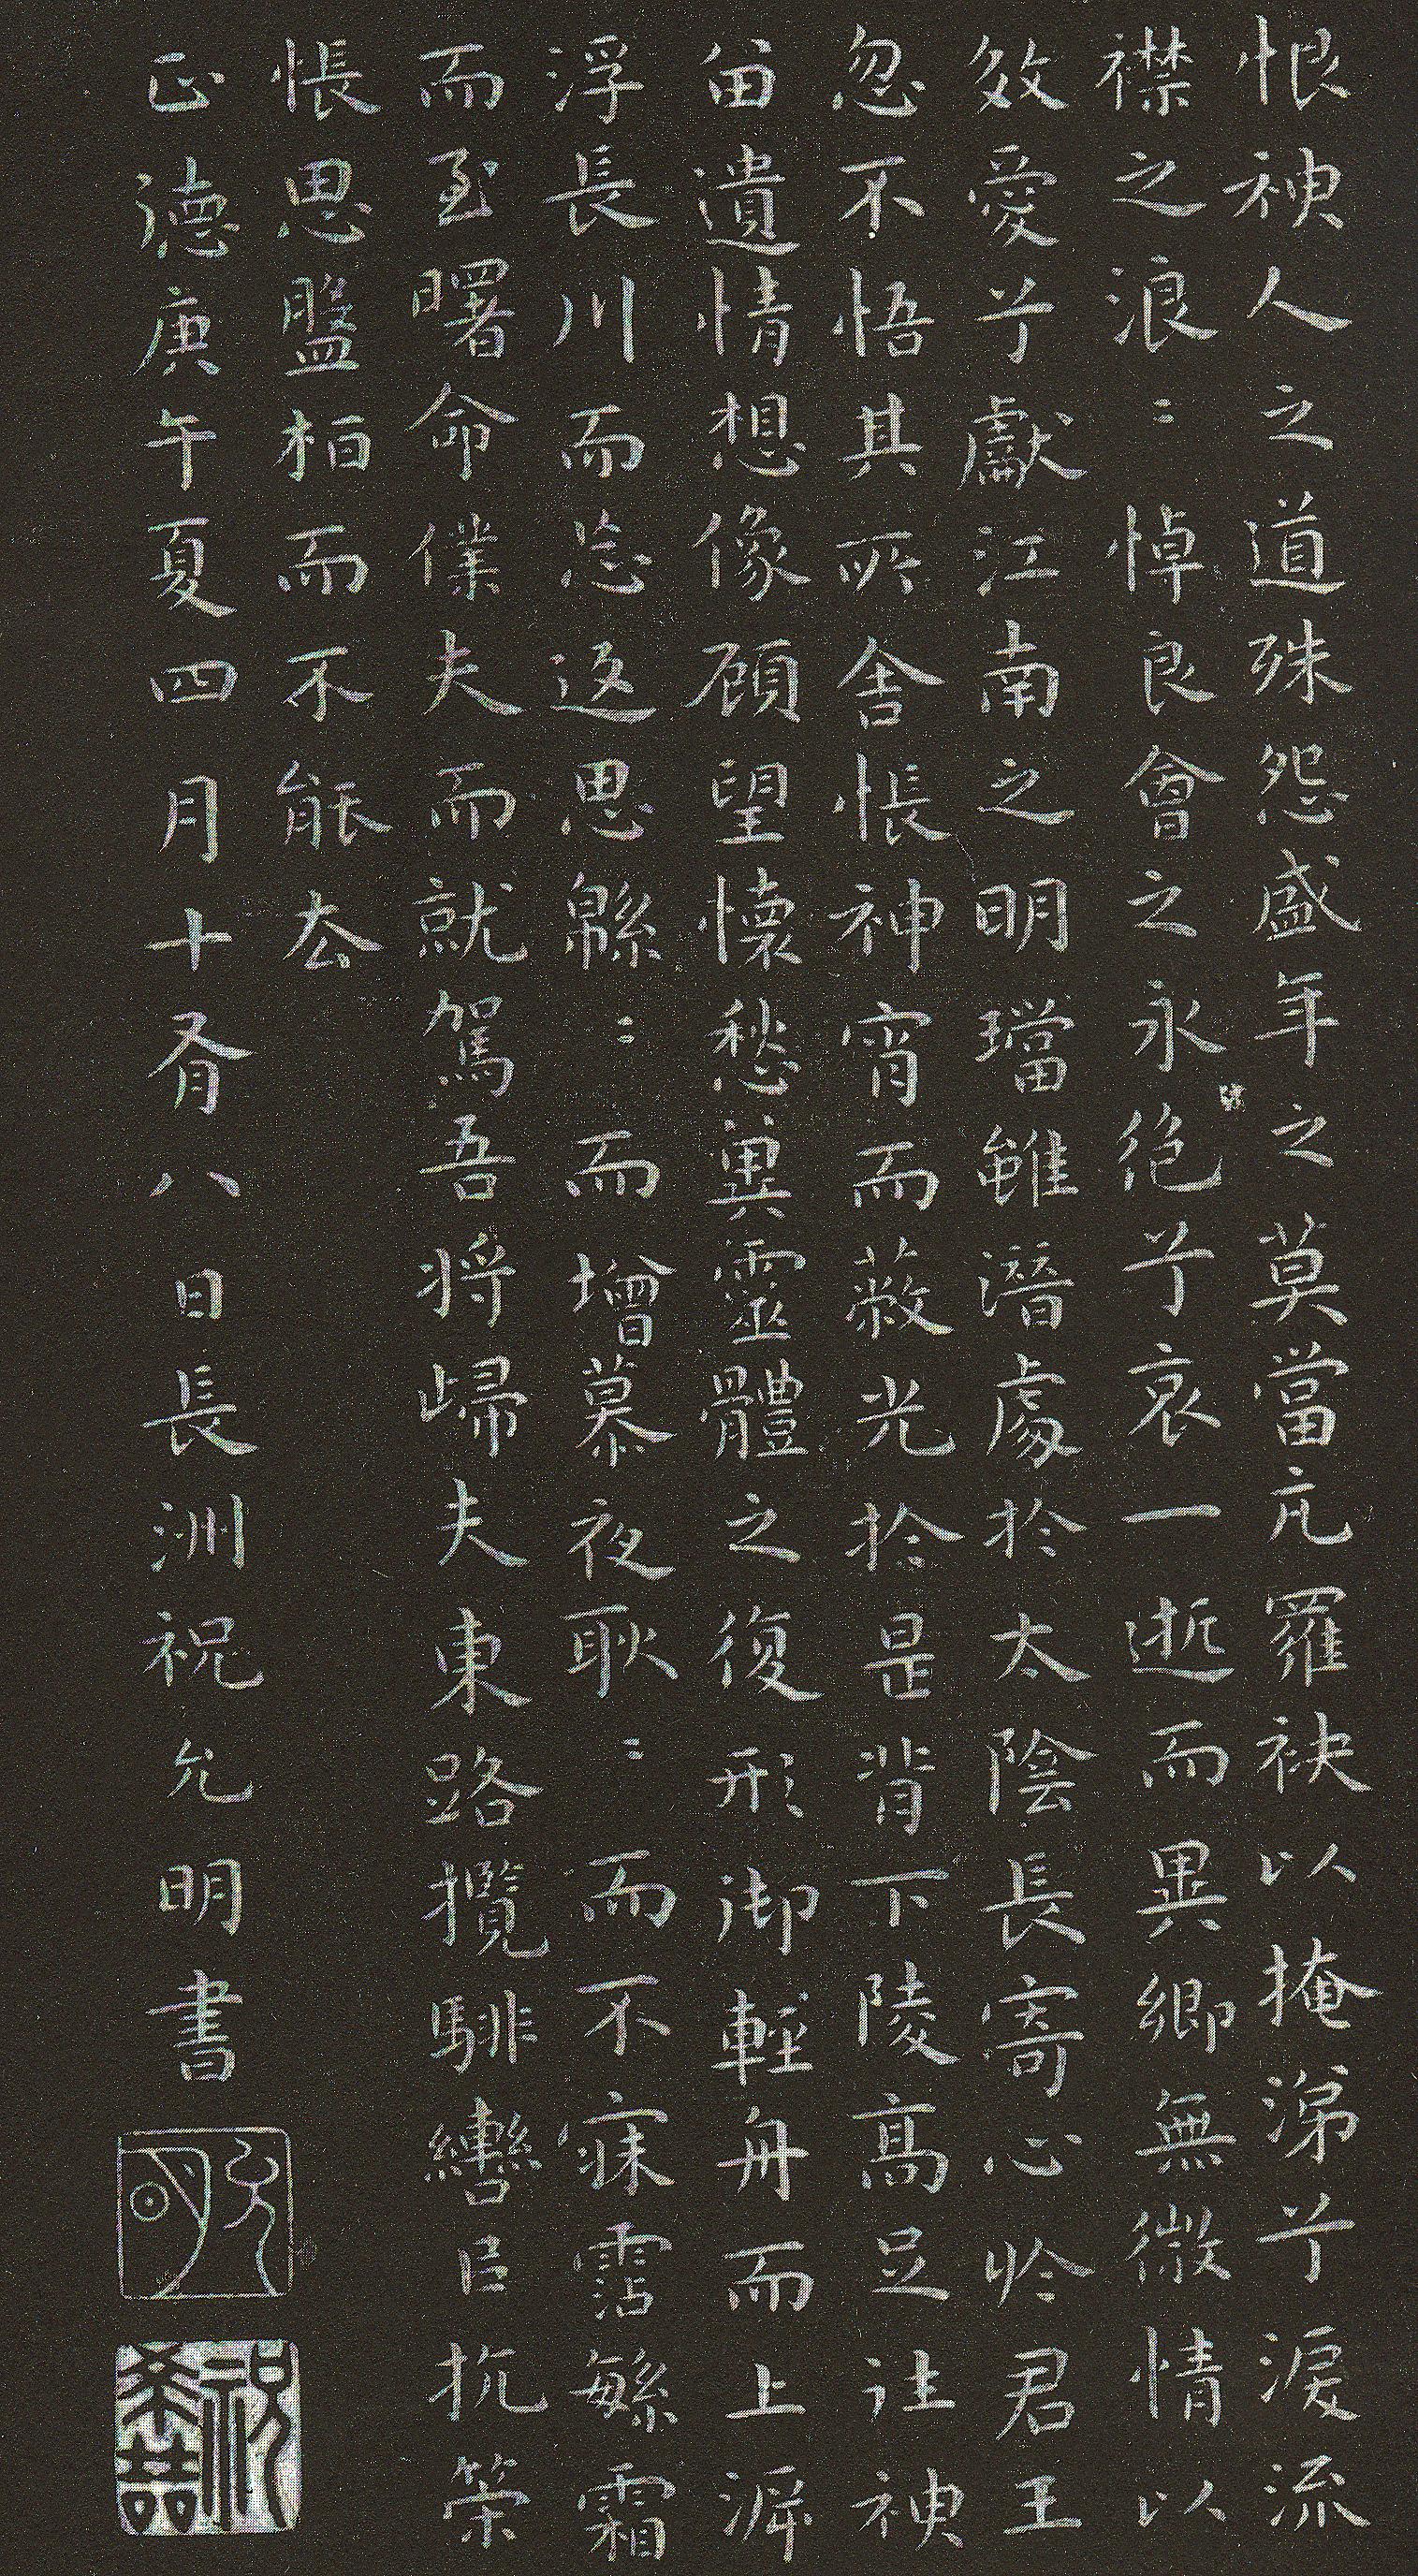 恨神人之道殊怨盛年之莫當亢羅袂以掩涕兮淚流
襟之浪〻悼良會之永絶兮哀一逝而異鄉無微情以
效愛兮獻江南之明璫雖潛處於太陰長寄心於君王
忽不悟其所舍悵神宵而蔽光於是背下陵高足往神
留遺情想像顧望懷愁冀靈體之復形御輕舟而上泝
浮長川而忘返思緜〻而增慕夜耿〻而不寐霑繁霜
而至曙命僕夫而就駕吾將歸夫東路攬騑轡㠯抗策
悵思盤桓而不能去
正德庚午夏四月十有八日長洲祝允明書
允明
祝